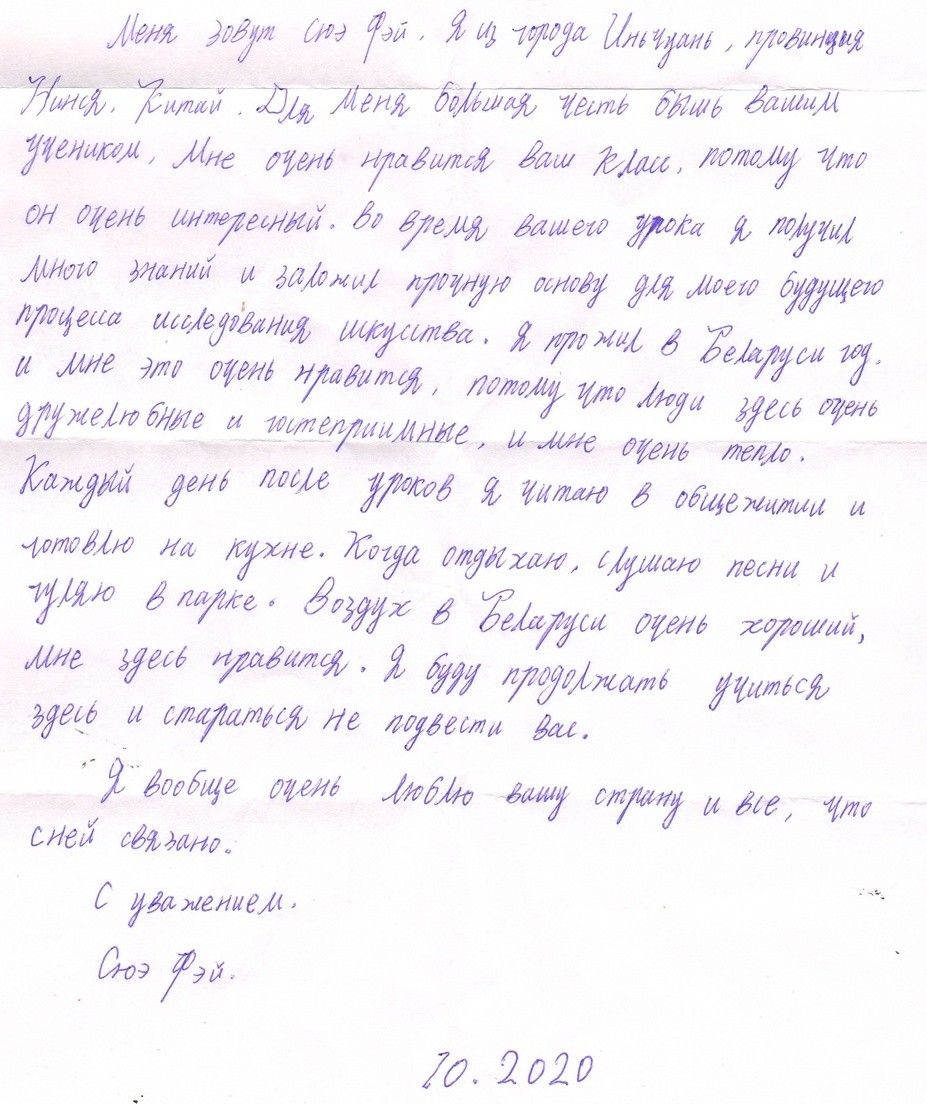 Меня зовут Сюэ Фэй. Я из города Иньчуань, провинция
Нинся. Китай. Для меня большая честь быть вашим
учеником, мне очень нравится ваш класс, потому что
он очень интересный. Во время вашего урока я получил
много знаний и заложил прочную основу для моего будущего
процесса исследования искусства. Я прожил в Беларуси год.
и мне это очень нравится, потому что люди здесь очень
дружелюбные и гостеприимные, и мне очень тепло.
Каждый день после уроков я читаю в общежитии и
готовлю на кухне. Когда отдыхаю, слушаю песни и
гуляю в парке. Воздух в Беларуси очень хороший,
мне здесь нравится. Я буду продолжать учиться
здесь и стараться не подвести вас.
Я вообще очень люблю вашу страну и все, что
сней связано.
С уважением.
Сюэ Фэй.
10.2020